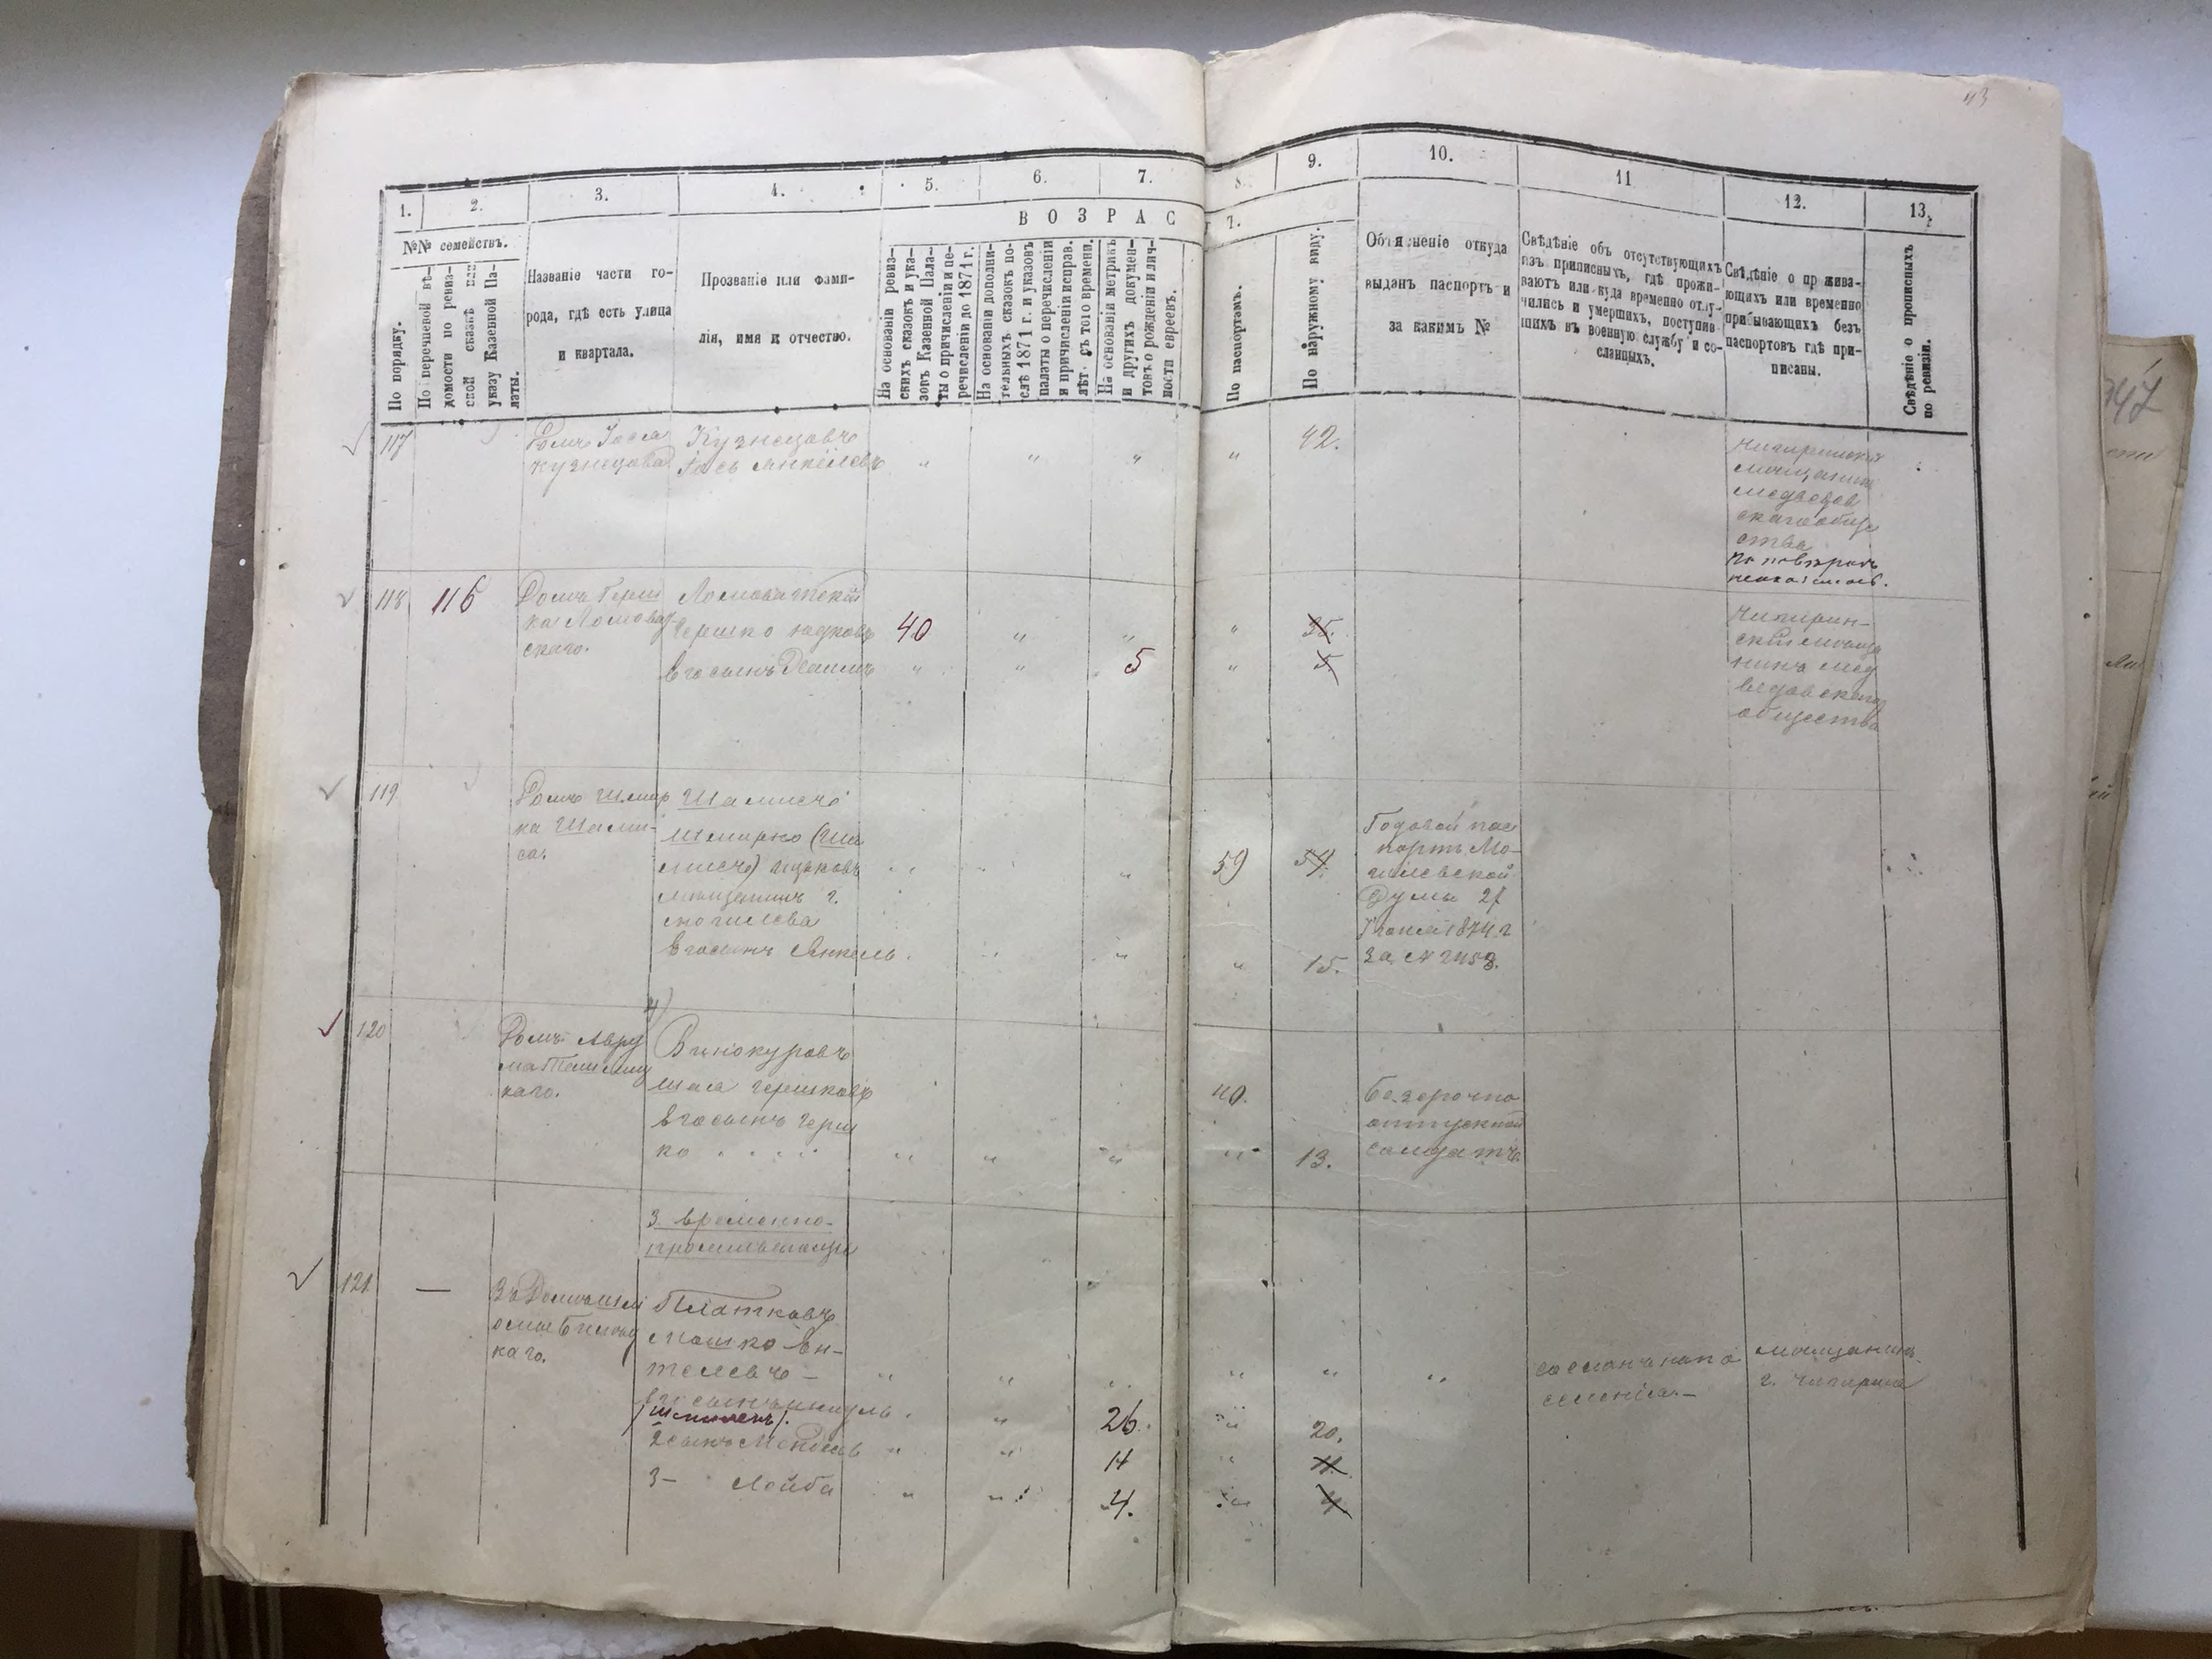 43
1.
2.
3.
4.
5.
6.
7.
8.
9.
10.
11
12.
13.
ВОЗРАС
Т.
№№ семействъ.
По порядку.
По перечневой вѣ-
домости по ревиз-
ской сказкѣ или
указу Казенной Па-
латы.
Названіе части го-
рода, гдѣ есть улица
и квартала.
Прозваніе или фами-
лія, имя и отчество.
На основаніи ревиз-
скихъ сказокъ и ука-
зовъ Казенной Пала-
ты о причисленіи и пе-
речислени до 1871 г.
На основаніи дополни-
тельныхъ сказокъ по-
слѣ 1871 г. и указовъ
палаты о перечисленіи
и причисленіи исправ.
лѣт съ того времени.
На основаніи метрикъ
и другихъ докумен-
товъ о рожденіи и лич-
ности евреевъ.
По паспортамъ.
По наружному виду.
Объясненіе откуда
выданъ паспортъ и
за какимъ №
Свѣдѣніе объ отсутствующихъ
изъ приписныхъ, гдѣ прожи-
ваютъ или куда временно отлу-
чились и умершихъ, поступив
шихъ въ военную службу и со-
сланныхъ.
Свѣдѣніе о прожива-
ющихъ или временно
прибывающихъ безъ
паспортовъ гдѣ при-
писаны.
Свѣдѣніе о прописныхъ
по ревизіи.
117
Домъ Іося
Кузнецова
Кузнецовъ
Іось Анкелевъ
42.
Чигиринскій
мѣщанинъ
медведов
скаго обще
ства
118
116
Домъ Герш
ка Ломоват
скаго.
Ломоватскій
Гершко Юдковъ
40
35.
Его сынъ Хаимъ
5
5
Чигирин-
скій мѣща
нинъ мед
ведовскаго
общества
119
Домъ Шмер
ка Шами-
са.
Шамисъ
Шмерко (Ша
мисъ) Ицковъ
мѣщанинъ г.
Могилева
59
54.
Его сынъ Анкель
15.
Годовой пас
портъ Мо-
гилевской
Думы 27
1874 г
за № 2453.
120
Домъ Авру
ма
каго.
Винокуровъ
Шая Гершковъ
40.
Его сынъ Герш
ко
13.
Безсрочно
отпускной
солдатъ.
3. Временно-
проживающіе
121
—
Въ Домѣ
каго.
Платковъ
Мошко Ен-
телевъ —
Его сынъ
26
20.
2 сынъ Мендель
11
11.
3— Лейба
4.
4
мѣщанинъ
г. Чигирина